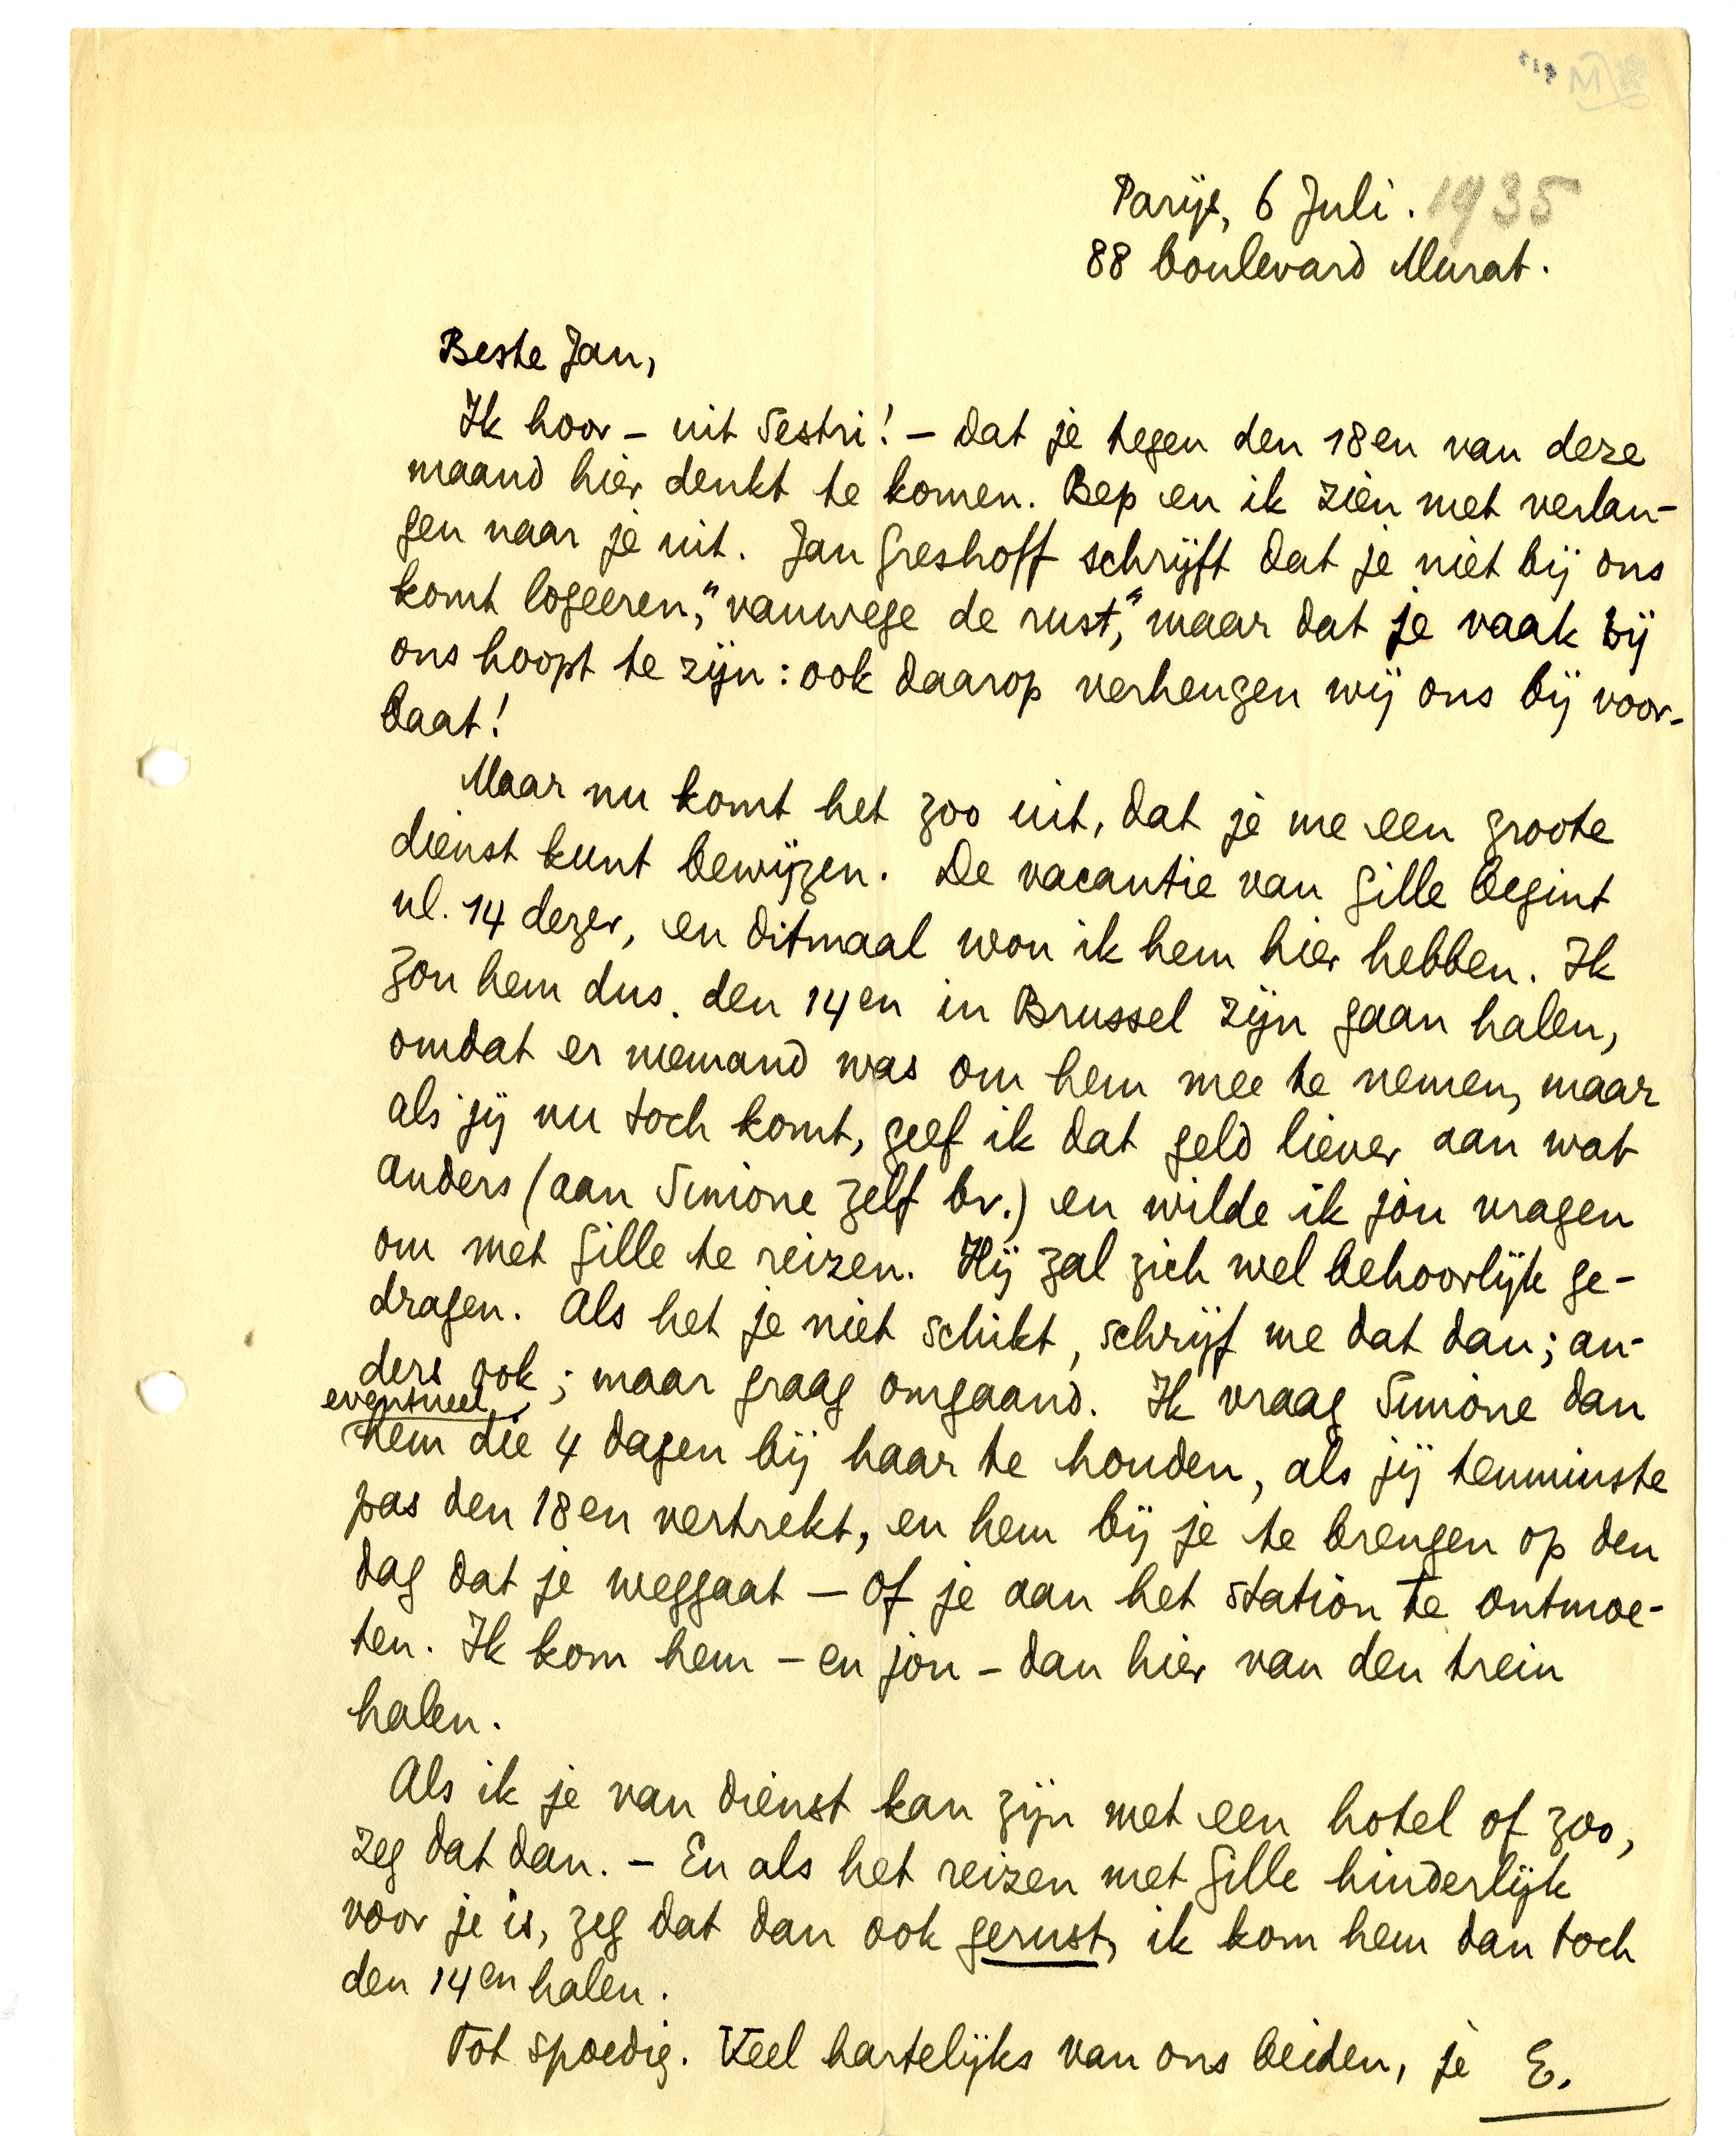 Parijs, 6 Juli. 1935
88 boulevard Murat.
Beste Jan,
Ik hoor – uit Sestri! – dat je tegen den 18en van deze
maand hier denkt te komen. Bep en ik zien met verlan-
gen naar je uit. Jan Greshoff schrijft dat je niet bij ons
komt logeeren, "vanwege de rust", maar dat je vaak bij
ons hoopt te zijn: ook daarop verheugen wij ons bij voor-
baat!
Maar nu komt het zoo uit, dat je me een groote
dienst kunt bewijzen. De vacantie van Gille begint
nl. 14 dezer, en ditmaal wou ik hem hier hebben. Ik
zou hem dus den 14en in Brussel zijn gaan halen,
omdat er niemand was om hem mee te nemen, maar
als jij nu toch komt, geef ik dat geld liever aan wat
anders (aan Simone zelf bv.) en wilde ik jou vragen
om met Gille te reizen. Hij zal zich wel behoorlijk ge-
dragen. Als het je niet schikt, schrijf me dat dan; an-
ders ook; maar graag omgaand. Ik vraag Simone dan
eventueel
hem die 4 dagen bij haar te houden, als jij tenminste
pas den 18en vertrekt, en hem bij je te brengen op den
dag dat je weggaat – of je aan het station te ontmoe-
ten. Ik kom hem – en jou – dan hier van den trein
halen.
Als ik je van dienst kan zijn met een hotel of zoo,
zeg dat dan. – En als het reizen met Gille hinderlijk
voor je is, zeg dat dan ook gerust, ik kom hem dan toch
den 14en halen.
Tot spoedig. Veel hartelijks van ons beiden, je E.